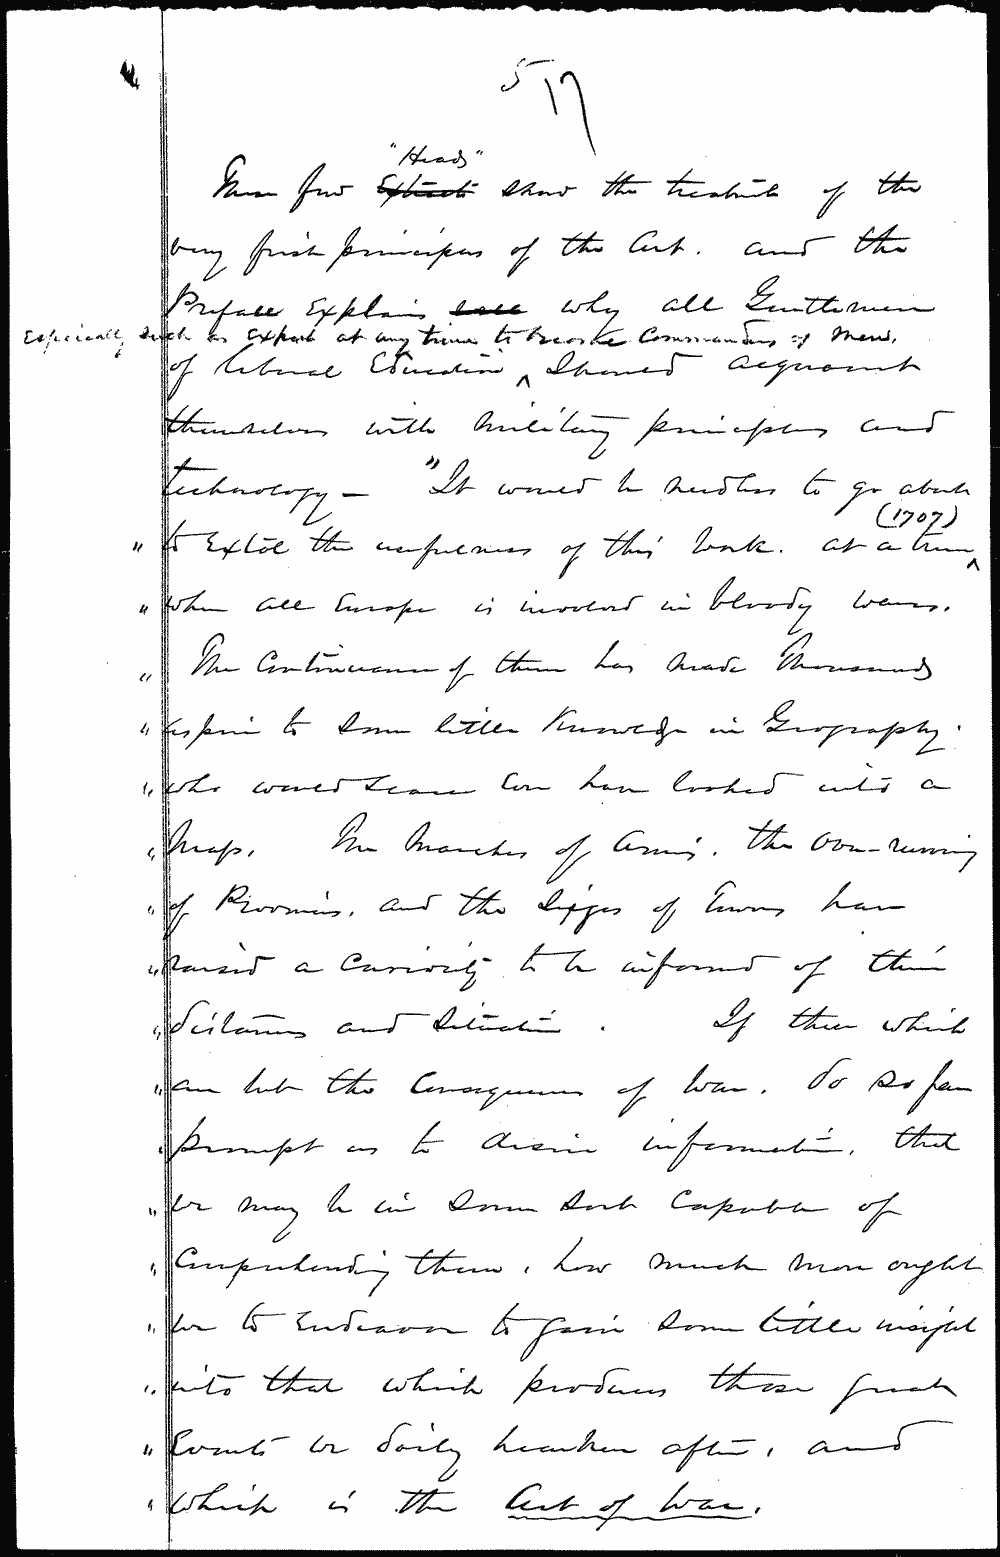 5 17
"Heads"
These few Extracts show the treatise of the
very first principles of the Art. and the
Preface Explains why all Gentlemen
Especially such as Expect at any time to become Commanders of Men.
of liberal Education ^ Should acquaint
themselves with Military principles and
technology — "It would be needless to go about
(1707)
" to Extol the usefulness of this Work. at a time ^
" when all Europe is involved in bloody wars.
" The Continuance of them has made Thousands
" aspire to some little Knowledge in Geography.
" who would scarce Ever have looked into a
" Map. The Marches of Armies. the over-running
" of Provinces. and the Sieges of Towns have
" raised a Curiosity to be informed of their
" distances and Situation. If these which
" are but the Consequences of War. do so far
" prompt us to desire information. that
" we may be in some sort Capable of
" Comprehending them, how much more ought
" we to Endeavor to gain some little insight
" into that which produces those great
" Events we daily hearken after, and
" which is the Art of War.